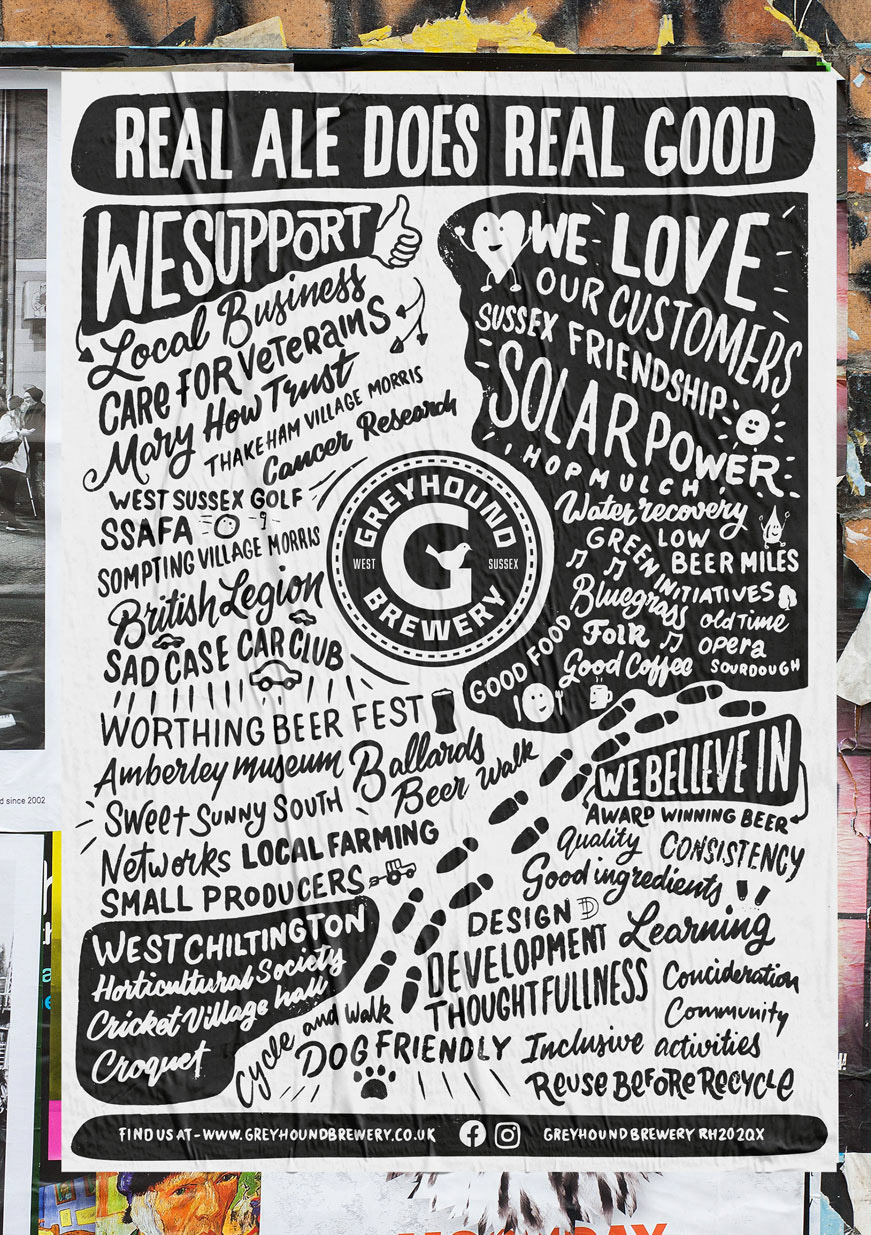 REAL ALE DOES REAL GOOD
WE SUPPORT
Local Business
CARE FOR VETERAINS
Mary How Trust
THAKEHAM VILLAGE MORRIS
Cancer Research
WEST SUSSEX GOLF
SSAFA
SOMPTING VILLAGE MORRIS
British Legion
SAD CASE CAR CLUB
WORTHING BEER FEST
Amberley museum
Ballards
Beer Walk
Sweet Sunny South
Networks LOCAL FARMING
SMALL PRODUCERS
WEST CHILTINGTON
Horticultural Society
Cricket Village hall
Croquet
Cycle and Walk
DOG FRIENDLY
GREYHOUND
WEST
G
SUSSEX
BREWERY
WE LOVE
OUR CUSTOMERS
SUSSEX FRIENDSHIP
SOLAR POWER
HOP MULCH
Water recovery
LOW
BEER MILES
GREEN INITIATIVES
Bluegrass
old Time
Folk
opera
GOOD FOOD
Good Coffee
SOURDOUGH
WE BELLEVE IN
AWARD WINNING BEER
Quality CONSISTENCY
Good ingredients
DESIGN D
Learning
DEVELOPMENT
THOUGHTFULLNESS
Concideration
Community
Inclusive activities
REUSE BEFORE RECYCLE
FIND US AT - WWW.GREYHOUNDBREWERY.CO.UK
GREYHOUND BREWERY RH20 2QX
d since 2002